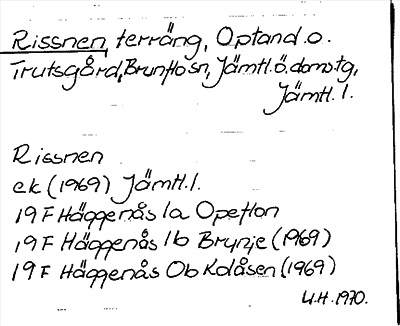 Rissnen, terräng, Optand o.
Trutsgård, Brunflo sn, Jämtl. ö. doms tg,
Jämtl. l.
Rissnen
ek (1969) Jämtl. l.
19 F Häggenås 1a Opeflon
19 F Häggenås 1b Brynje (1969)
19 F Häggenås 0b Kolåsen (1969)
U.H. 1970.